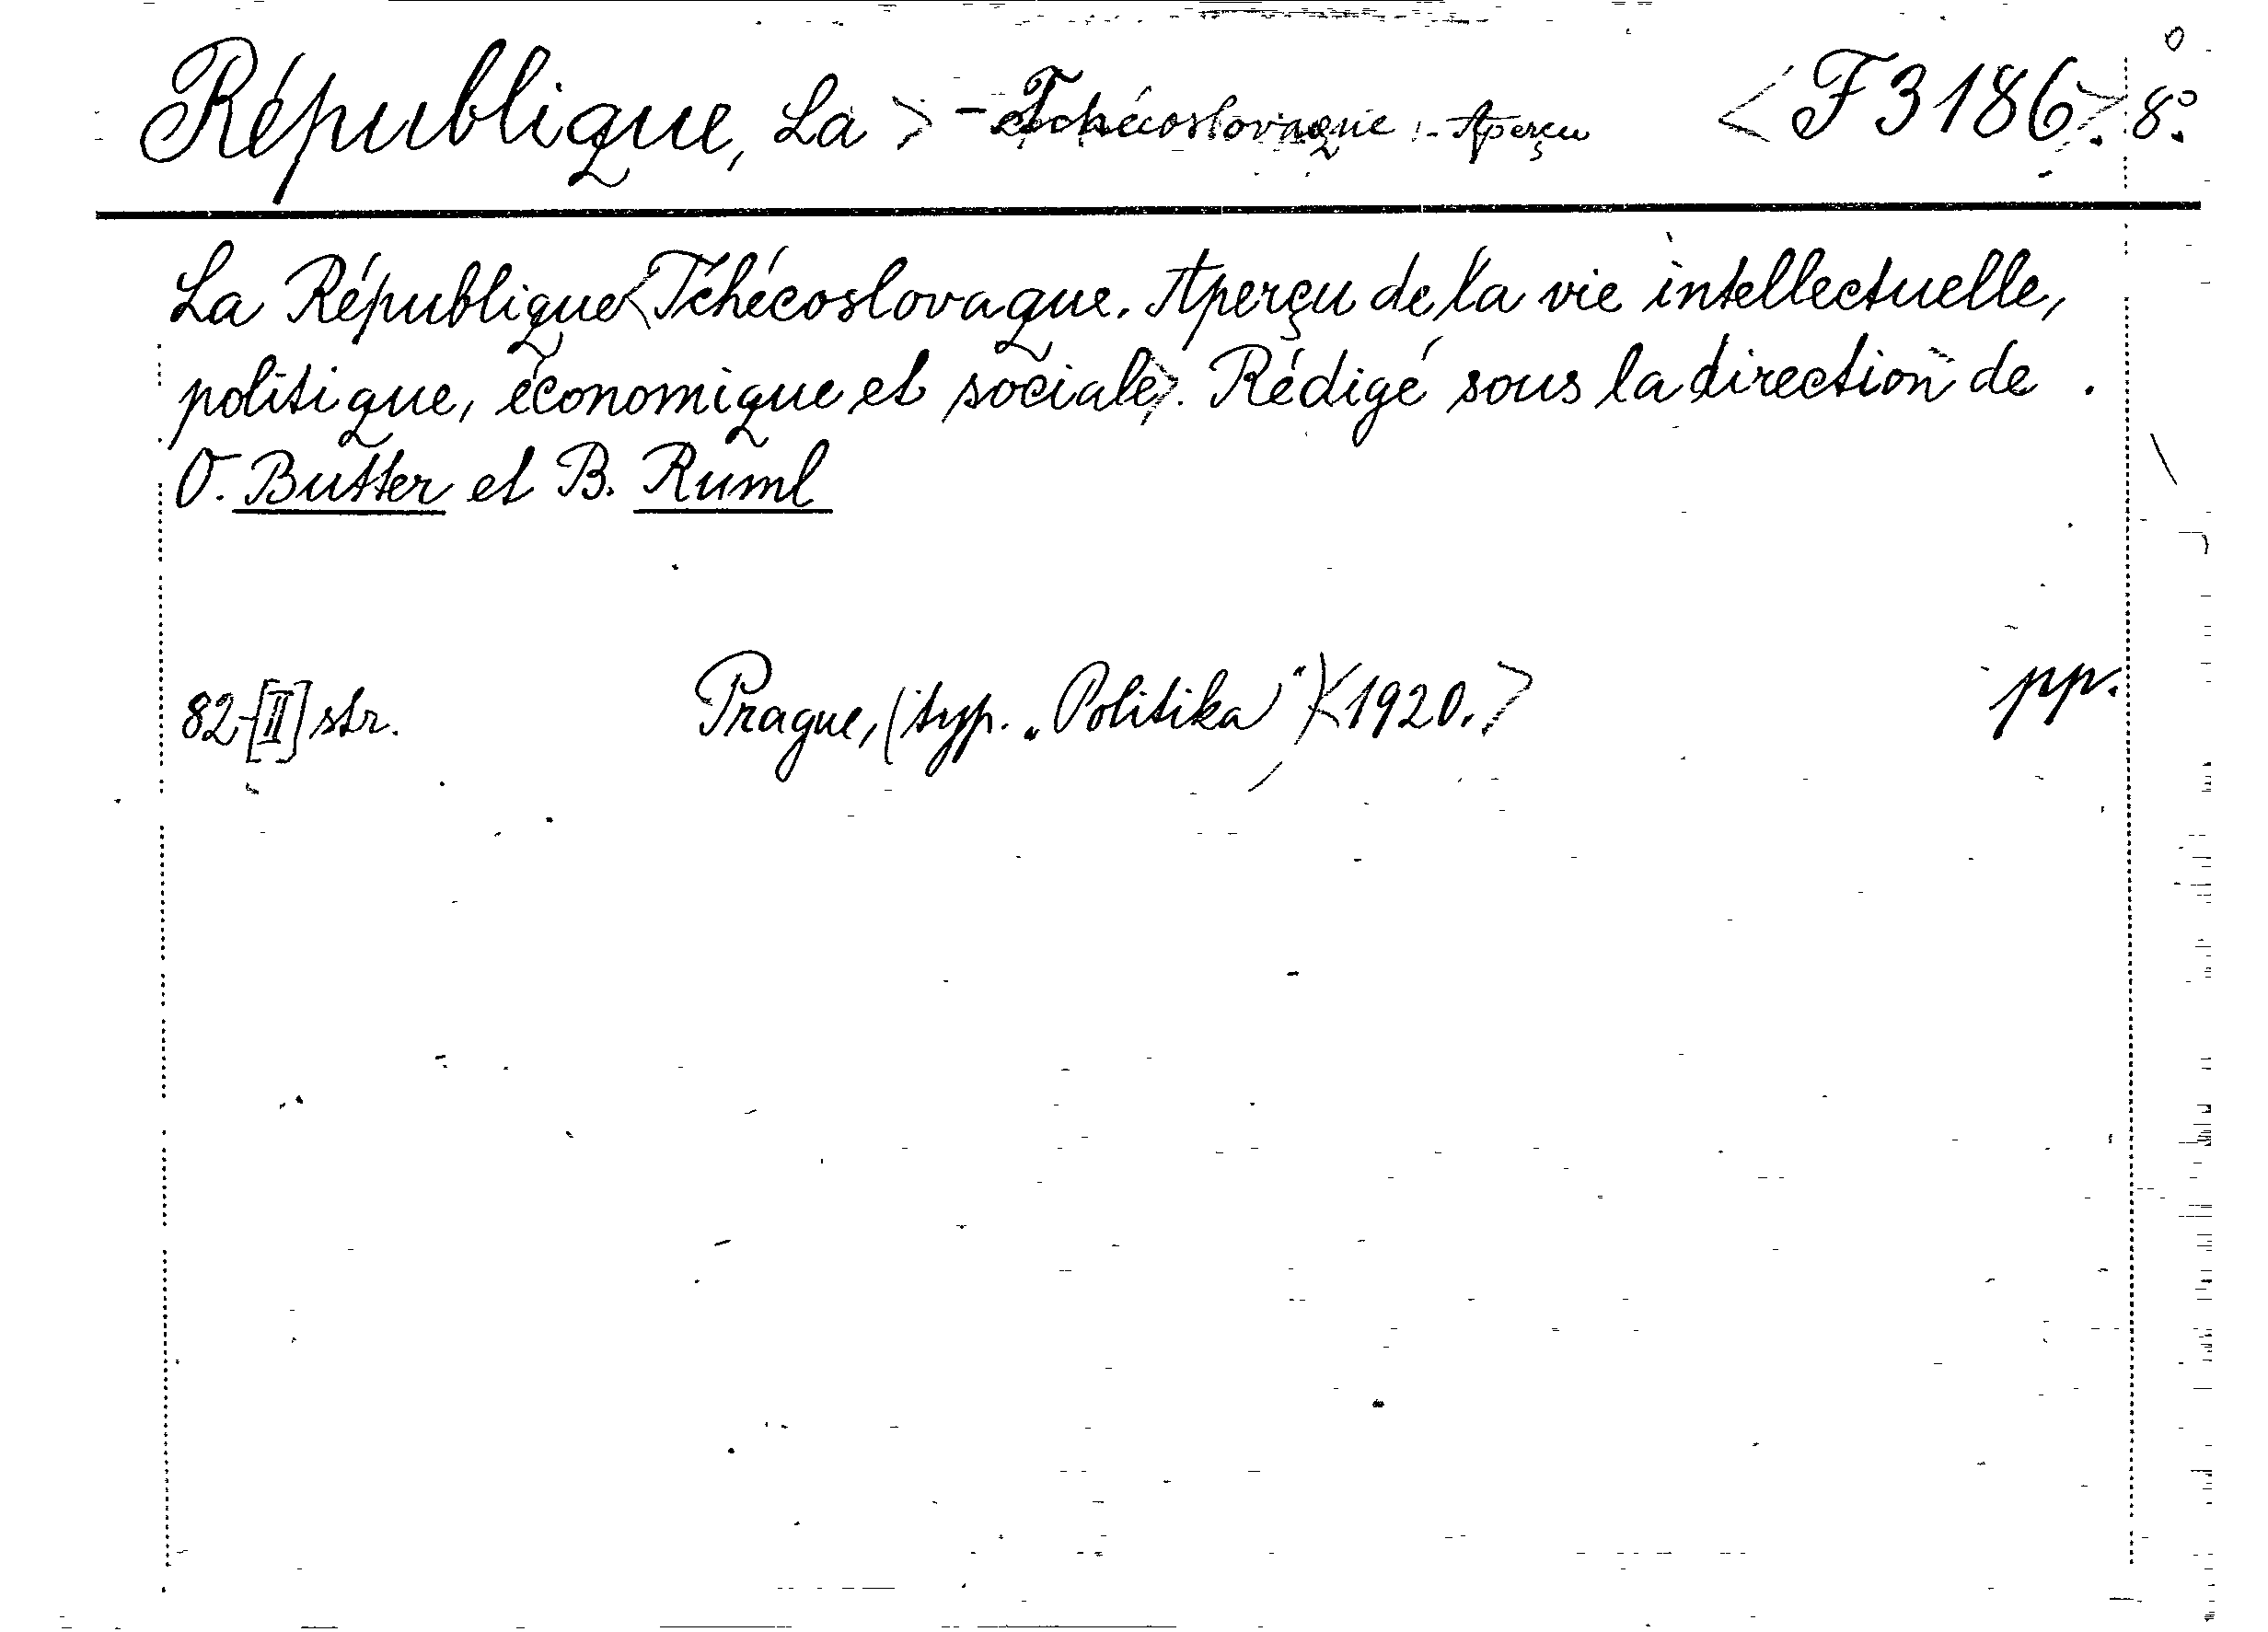 République, La > - Tchécoslovaque - Aperçu <F 3186>. 8°.
La République <Tchécoslovaque. Aperçu de la vie intellectuelle,
politique, économique et sociale>. Rédigé sous la direction de
O. Butter et B. Ruml
82-[II] str. Prague, (typ. „Politika") <1920.> pp.